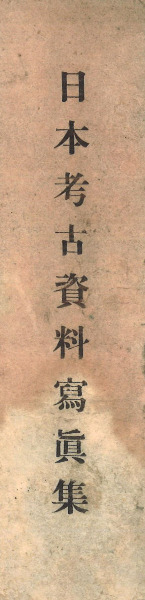 日本考古資料寫眞集